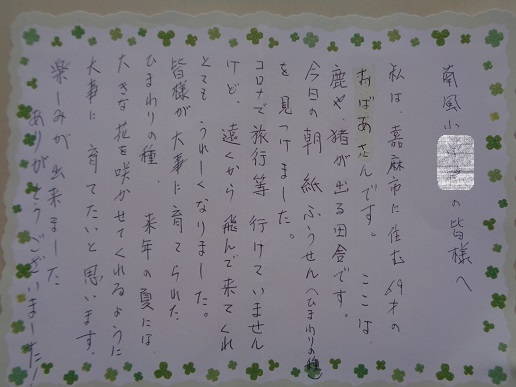 南風小 の皆様へ
私は、嘉麻市に住む69才の
おばあさんです。ここは、
鹿や、猪が出る田舎です。
今日の朝 紙ふうせん(ひまわりの種)
を 見つけました。
コロナで旅行等 行けていません
けど、遠くから 飛んで来てくれ
とても うれしくなりました。
皆様が 大事に育てられた
ひまわりの種、来年の夏には、
大きな花を咲かせてくれるように
大事に 育てたいと 思います。
楽しみが出来ました
ありがとうございいました!